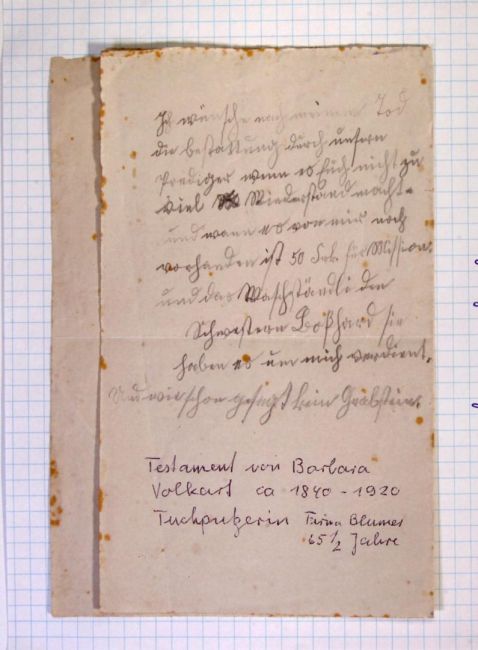 Ich wünsche nach meinem Tod
die Bestattung durch unsern
Prediger wenn es Euch nicht zu
viel Wiederstand macht.
und wann es von mir noch
vorhanden ist 50 Frk. für Mission.
und das Waschständli den
Schwestern Boßhard sie
haben es um mich verdient.
Und wie schon gesagt kein Grabstein.
Testament von Barbara
Volkart ca 1840 - 1920
Tuchputzerin Firma Blumer
65 1/2 Jahre